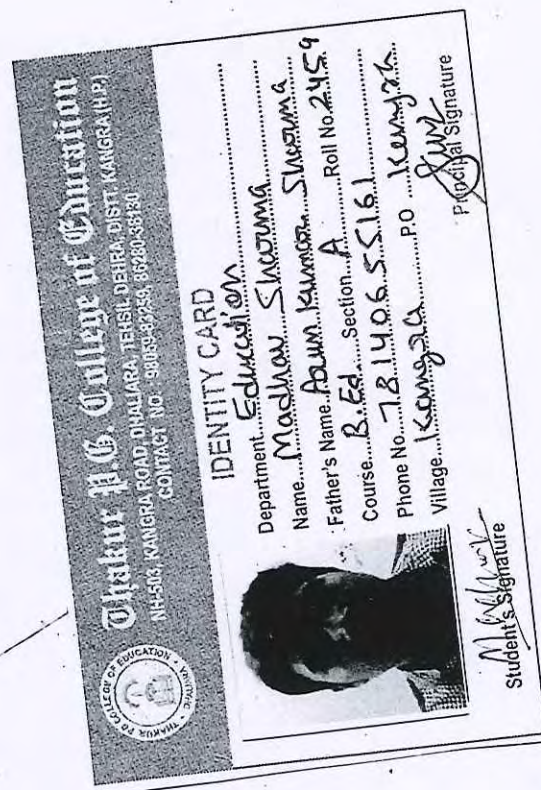 Thakur P.G. College of Education
NH-503, KANGRA ROAD, DHALIARA, TEHSIL DEHRA, DISTT. KANGRA (H.P.)
IDENTITY CARD
Department Education
Name Madhav Sharma
Father's Name Arun Kumar Sharma
Course B.Ed Section A Roll No. 2459
Phone No. 78140655161
Village Kangra P.O Kangra
Student's Signature
Principal Signature